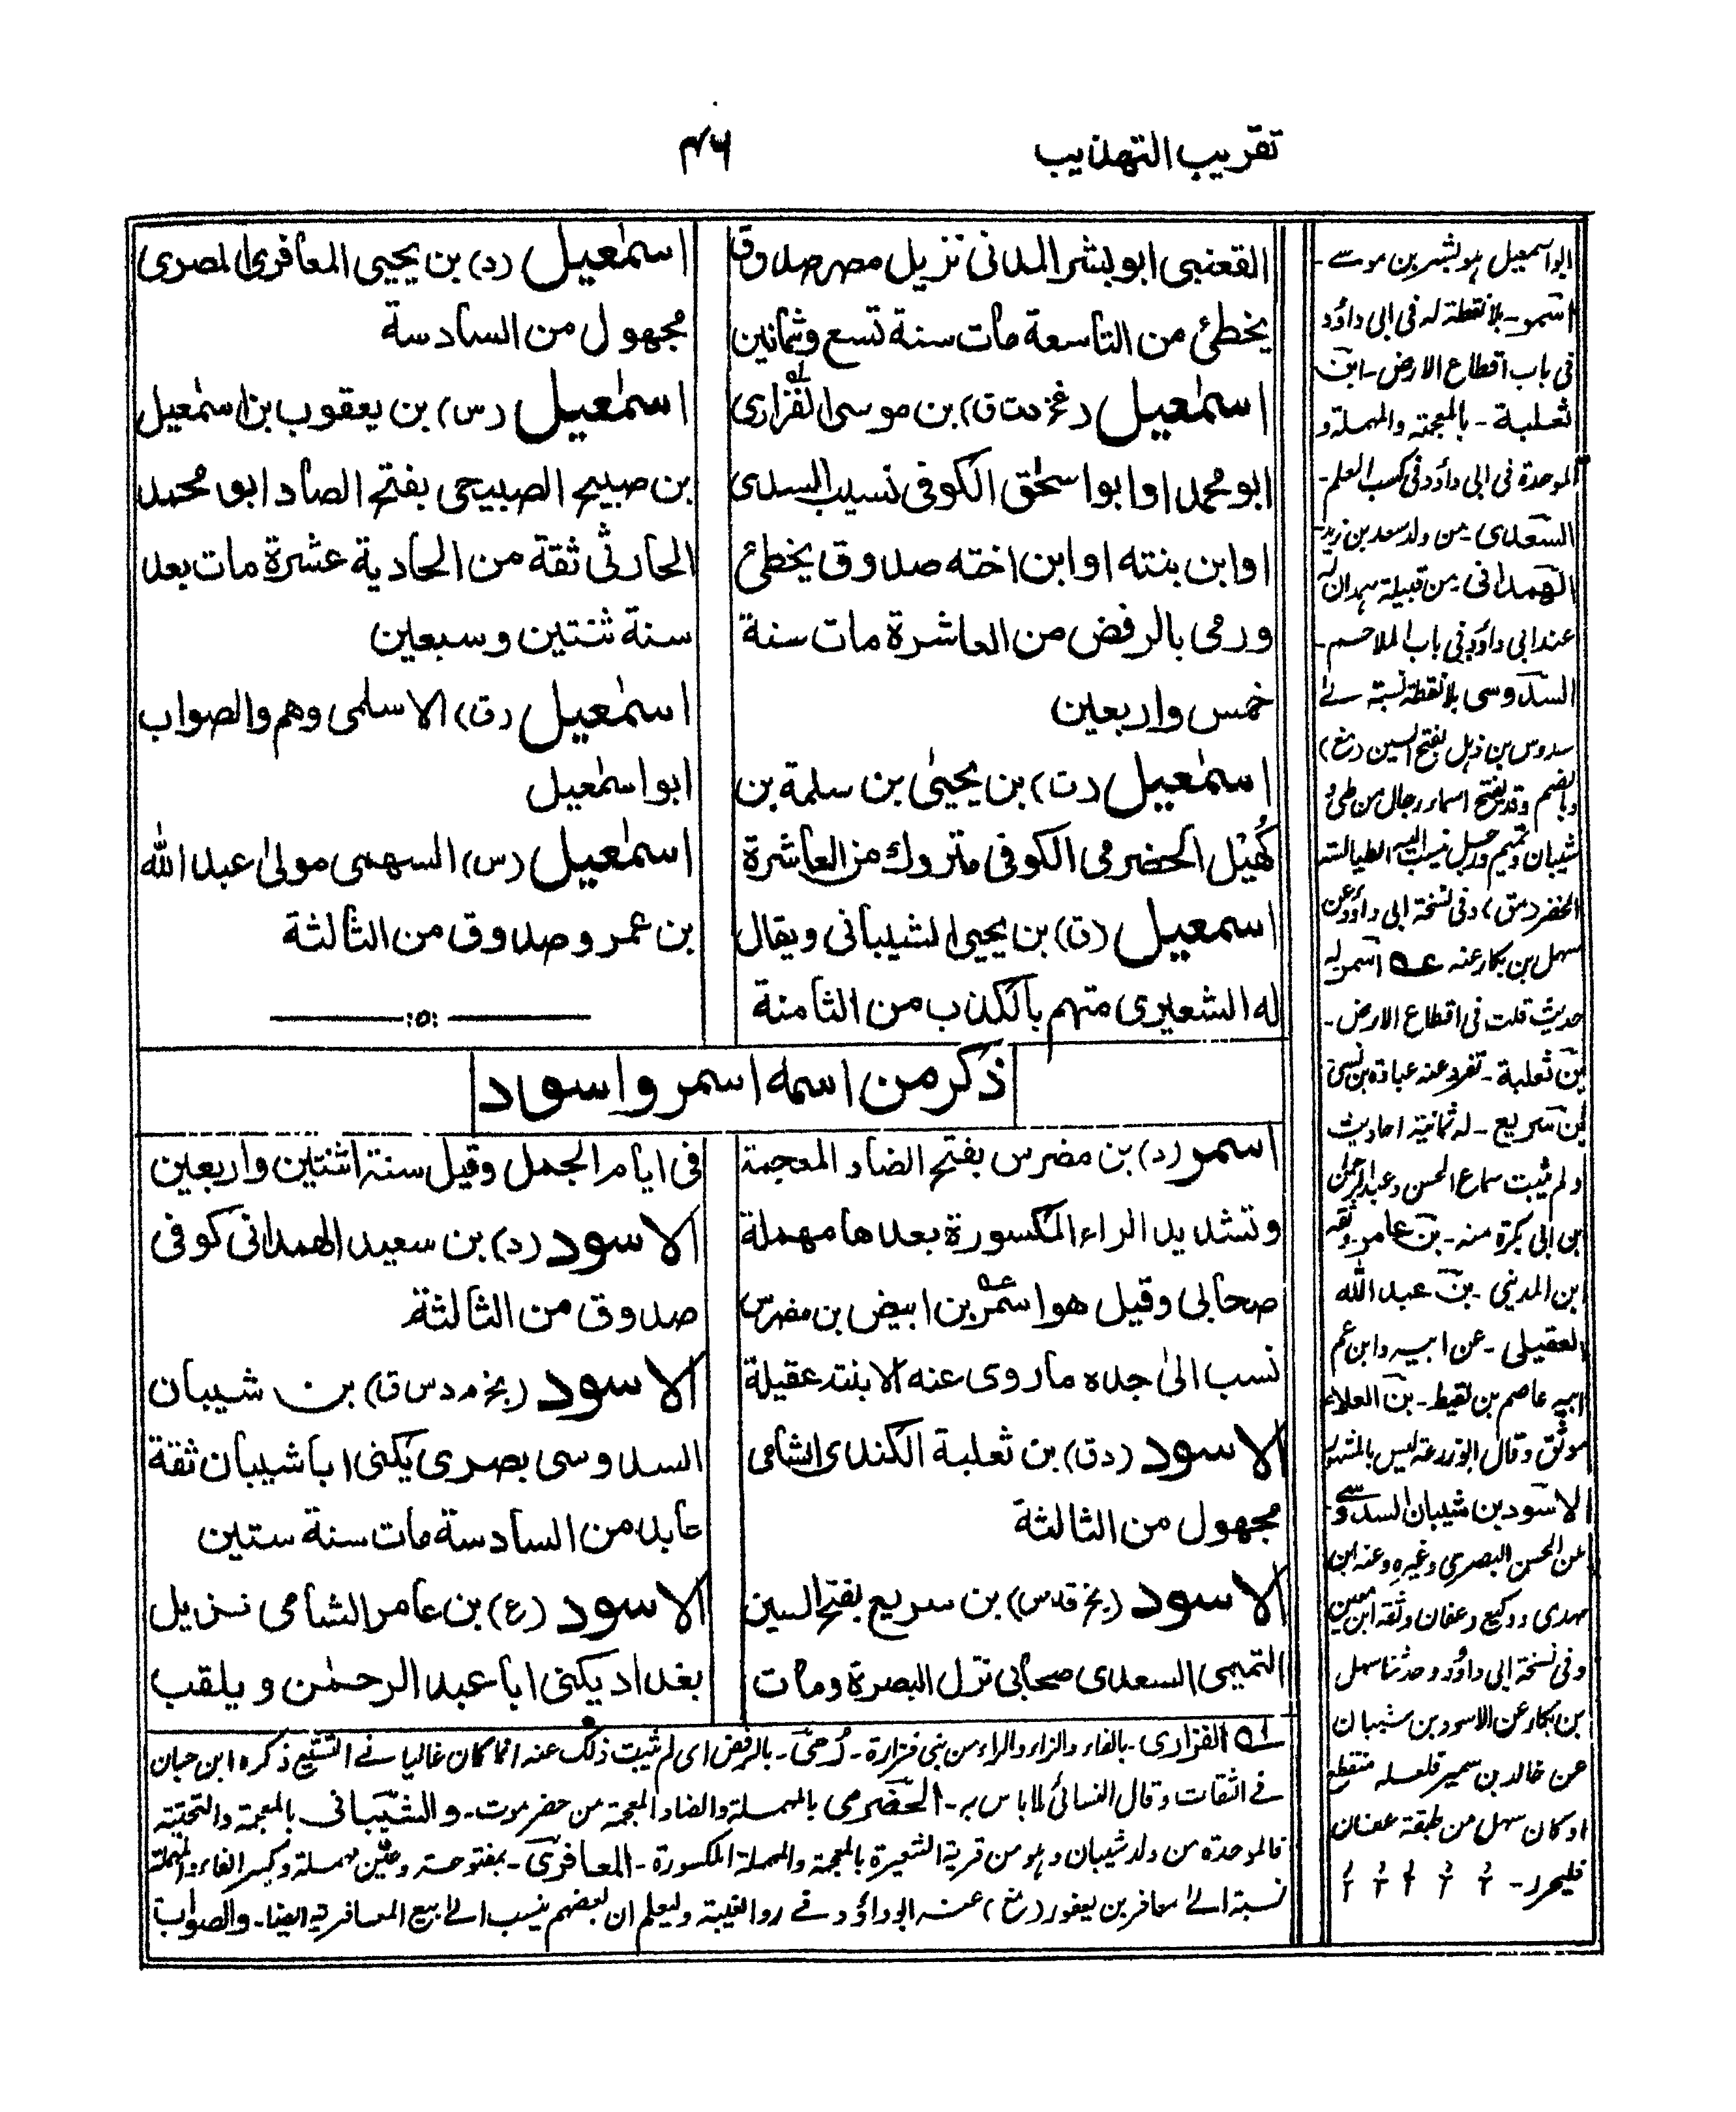 تقريب التهذيب
۴۶
القعنبى ابو بشر المدنى نزيل مصر صدوق
يخطئ من التاسعة مات سنة تسع وثمانين
اسمٰعيل (عخ د ت ق) بن موسى الفزارى
ابو محمد او ابو اسحٰق الكوفى نسيب السدى
او ابن بنته او ابن اخته صدوق يخطئ
ورمى بالرفض من العاشرة مات سنة
خمس واربعين
اسمٰعيل (ت) بن يحيىٰ بن سلمة بن
كُهَيْل الحضرمى الكوفى متروك من العاشرة
اسمعيل (ق) بن يحيى الشيبانى ويقال
له الشعيرى متهم بالكذب من الثامنة
اسمٰعيل (د) بن يحيى المعافرى المصرى
مجهول من السادسة
اسمٰعيل (س) بن يعقوب بن اسمٰعيل
بن صبيح الصبيحى بفتح الصاد ابو محمد
الحارثى ثقة من الحادية عشرة مات بعد
سنة ثنتين وسبعين
اسمٰعيل (ق) الاسلمى وهم والصواب
ابو اسمٰعيل
اسمٰعيل (س) السهمى مولىٰ عبد الله
بن عمرو صدوق من الثالثة
ذكر من اسمه اسمر واسود
اسمر (د) بن مضرس بفتح الضاد المعجمة
وتشديد الراء المكسورة بعدها مهملة
صحابى وقيل هو اسمر بن ابيض بن مضرس
نسب الىٰ جده ما روى عنه الا بنته عقيلة
الاسود (د ق) بن ثعلبة الكندى الشامى
مجهول من الثالثة
الاسود (بخ قد س) بن سريع بفتح السين
التميمى السعدى صحابى نزل البصرة ومات
فى ايام الجمل وقيل سنة اثنتين واربعين
الاسود (د) بن سعيد الهمدانى كوفى
صدوق من الثالثة
الاسود (بخ م د س ق) بن شيبان
السدوسى بصرى يكنى ابا شيبان ثقة
عابد من السادسة مات سنة ستين
الاسود (ع) بن عامر الشامى نزيل
بغداد يكنى ابا عبد الرحمٰن ويلقب
الفزارى - بالفاء والزاء والراء من بنى فزارة - رُمى - بالرفض اى لم يثبت ذلك عنه انما كان غاليا فى التشيع ذكره ابن حبان
فى الثقات وقال النسائى لا باس به - الحضرمى بالمهملة والضاد المعجمة من حضرموت - والشيبانى بالمعجمة والتحتية
فالموحدة من ولد شيبان وهو من قرية الشعيرة بالمعجمة والمهملة المكسورة - المعافرى - بمفتوحة وعين مهملة وكسر الفاء والمهملة
نسبة الى معافر بن يعفور (مغ) عنه ابو داؤد فى رد الغيبة وليعلم ان بعضهم ينسب الى بيع المعافرية ايضا - والصواب
ابو اسمعيل هو بشير بن موسى -
اسمر - بلا نقطة له فى ابى داؤد
فى باب اقطاع الارض - ابن
ثعلبة - بالمعجمة والمهملة و
الموحدة فى ابى داؤد فى كسب المعلم -
السعدى - من ولد سعد بن زيد
الهمدانى - من قبيلة همدان له
عند ابى داؤد فى باب الملاحم -
السدوسى بلا نقطة نسبة الى
سدوس بن ذهل بفتح السين (مغ)
وبالضم وقد يفتح اسماء رجال من طى و
شيبان وتميم ورجل نسبت اليه الطيالسة
الخضر (مق) وفى نسخة ابى داؤد عن
سهل بن بكار عنه عــه اسمر له
حديث قلت فى اقطاع الارض -
بن ثعلبة - تفرد عنه عبادة بن نسى
بن سريع - له ثمانية احاديث
ولم يثبت سماع الحسن وعبد الرحمٰن
بن ابى بكرة منه - بن عامر - وثقه
ابن المدينى - بن عبد الله
العقيلى - عن ابيه وابن عم
ابيه عاصم بن لقيط - بن العلاء
موثق وقال ابو زرعة ليس بالمشهور
الاسود بن شيبان السدوسى
عن الحسن البصرى وغيره وعنه ابن
مهدى ووكيع وعفان وثقه ابن معين
وفى نسخة ابى داؤد وحدثنا سهل
بن بكار عن الاسود بن شيبان
عن خالد بن سمير فلعله منقطع
او كان سهل من طبقة عفان
فليحرر -